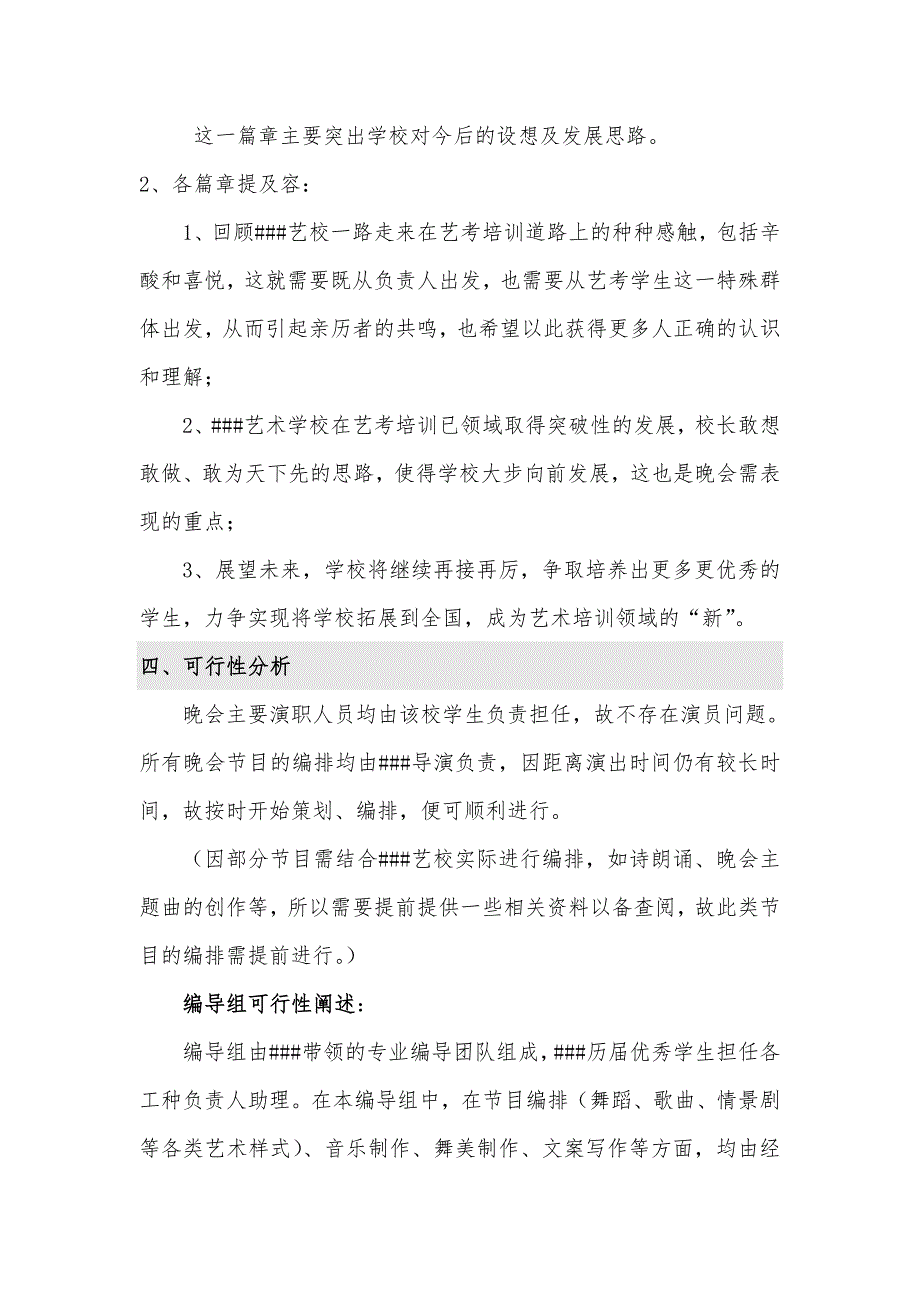 这一篇章主要突出学校对今后的设想及发展思路。
2、各篇章提及容：
1、回顾###艺校一路走来在艺考培训道路上的种种感触，包括辛
酸和喜悦，这就需要既从负责人出发，也需要从艺考学生这一特殊群
体出发，从而引起亲历者的共鸣，也希望以此获得更多人正确的认识
和理解；
2、###艺术学校在艺考培训已领域取得突破性的发展，校长敢想
敢做、敢为天下先的思路，使得学校大步向前发展，这也是晚会需表
现的重点；
3、展望未来，学校将继续再接再厉，争取培养出更多更优秀的
学生，力争实现将学校拓展到全国，成为艺术培训领域的“新”。
四、可行性分析
晚会主要演职人员均由该校学生负责担任，故不存在演员问题。
所有晚会节目的编排均由###导演负责，因距离演出时间仍有较长时
间，故按时开始策划、编排，便可顺利进行。
（因部分节目需结合###艺校实际进行编排，如诗朗诵、晚会主
题曲的创作等，所以需要提前提供一些相关资料以备查阅，故此类节
目的编排需提前进行。）
编导组可行性阐述：
编导组由###带领的专业编导团队组成，###历届优秀学生担任各
工种负责人助理。在本编导组中，在节目编排（舞蹈、歌曲、情景剧
等各类艺术样式）、音乐制作、舞美制作、文案写作等方面，均由经